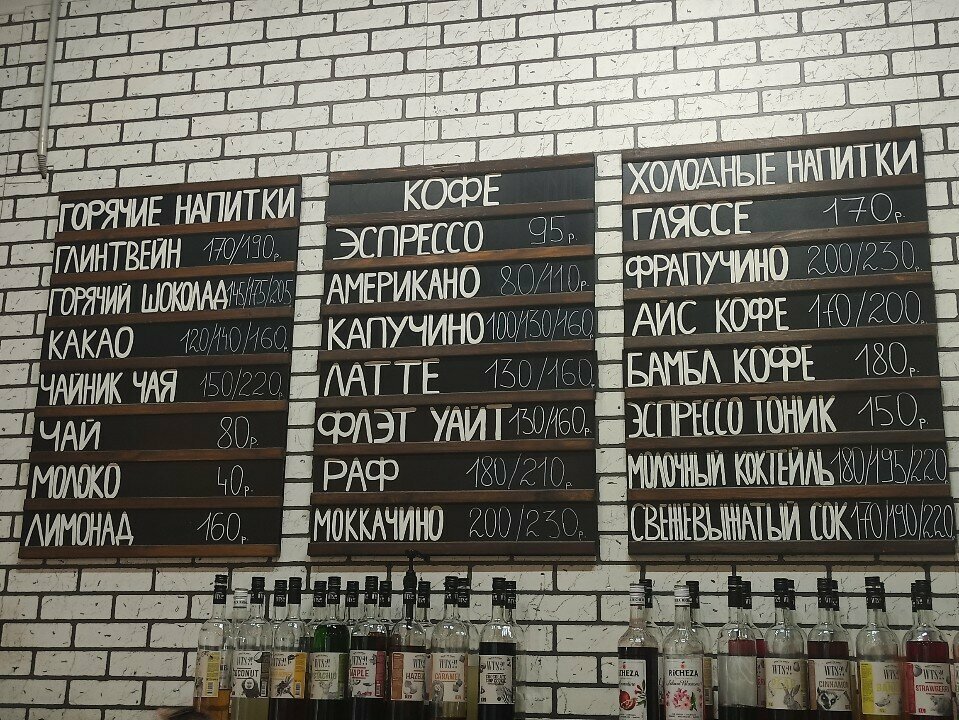 ГОРЯЧИЕ НАПИТКИ
ГЛИНТВЕЙН 170/190р.
ГОРЯЧИЙ ШОКОЛАД 145/175/205
КАКАО 120/140/160р.
ЧАЙНИК ЧАЯ 150/220р.
ЧАЙ 80р.
МОЛОКО 40р.
ЛИМОНАД 160р.
КОФЕ
ЭСПРЕССО 95р.
АМЕРИКАНО 80/110р.
КАПУЧИНО 100/130/160р.
ЛАТТЕ 130/160р.
ФЛЭТ УАЙТ 130/160р.
РАФ 180/210р.
МОККАЧИНО 200/230р.
ХОЛОДНЫЕ НАПИТКИ
ГЛЯССЕ 170р.
ФРАПУЧИНО 200/230р.
АЙС КОФЕ 170/200р.
БАМБЛ КОФЕ 180р.
ЭСПРЕССО ТОНИК 150р.
МОЛОЧНЫЙ КОКТЕЙЛЬ 180/195/220
СВЕЖЕВЫЖАТЫЙ СОК 170/190/220р.
COCONUT
CARAMEL
RICHEZA
RICHEZA
CINNAMON
STRAWBERRY